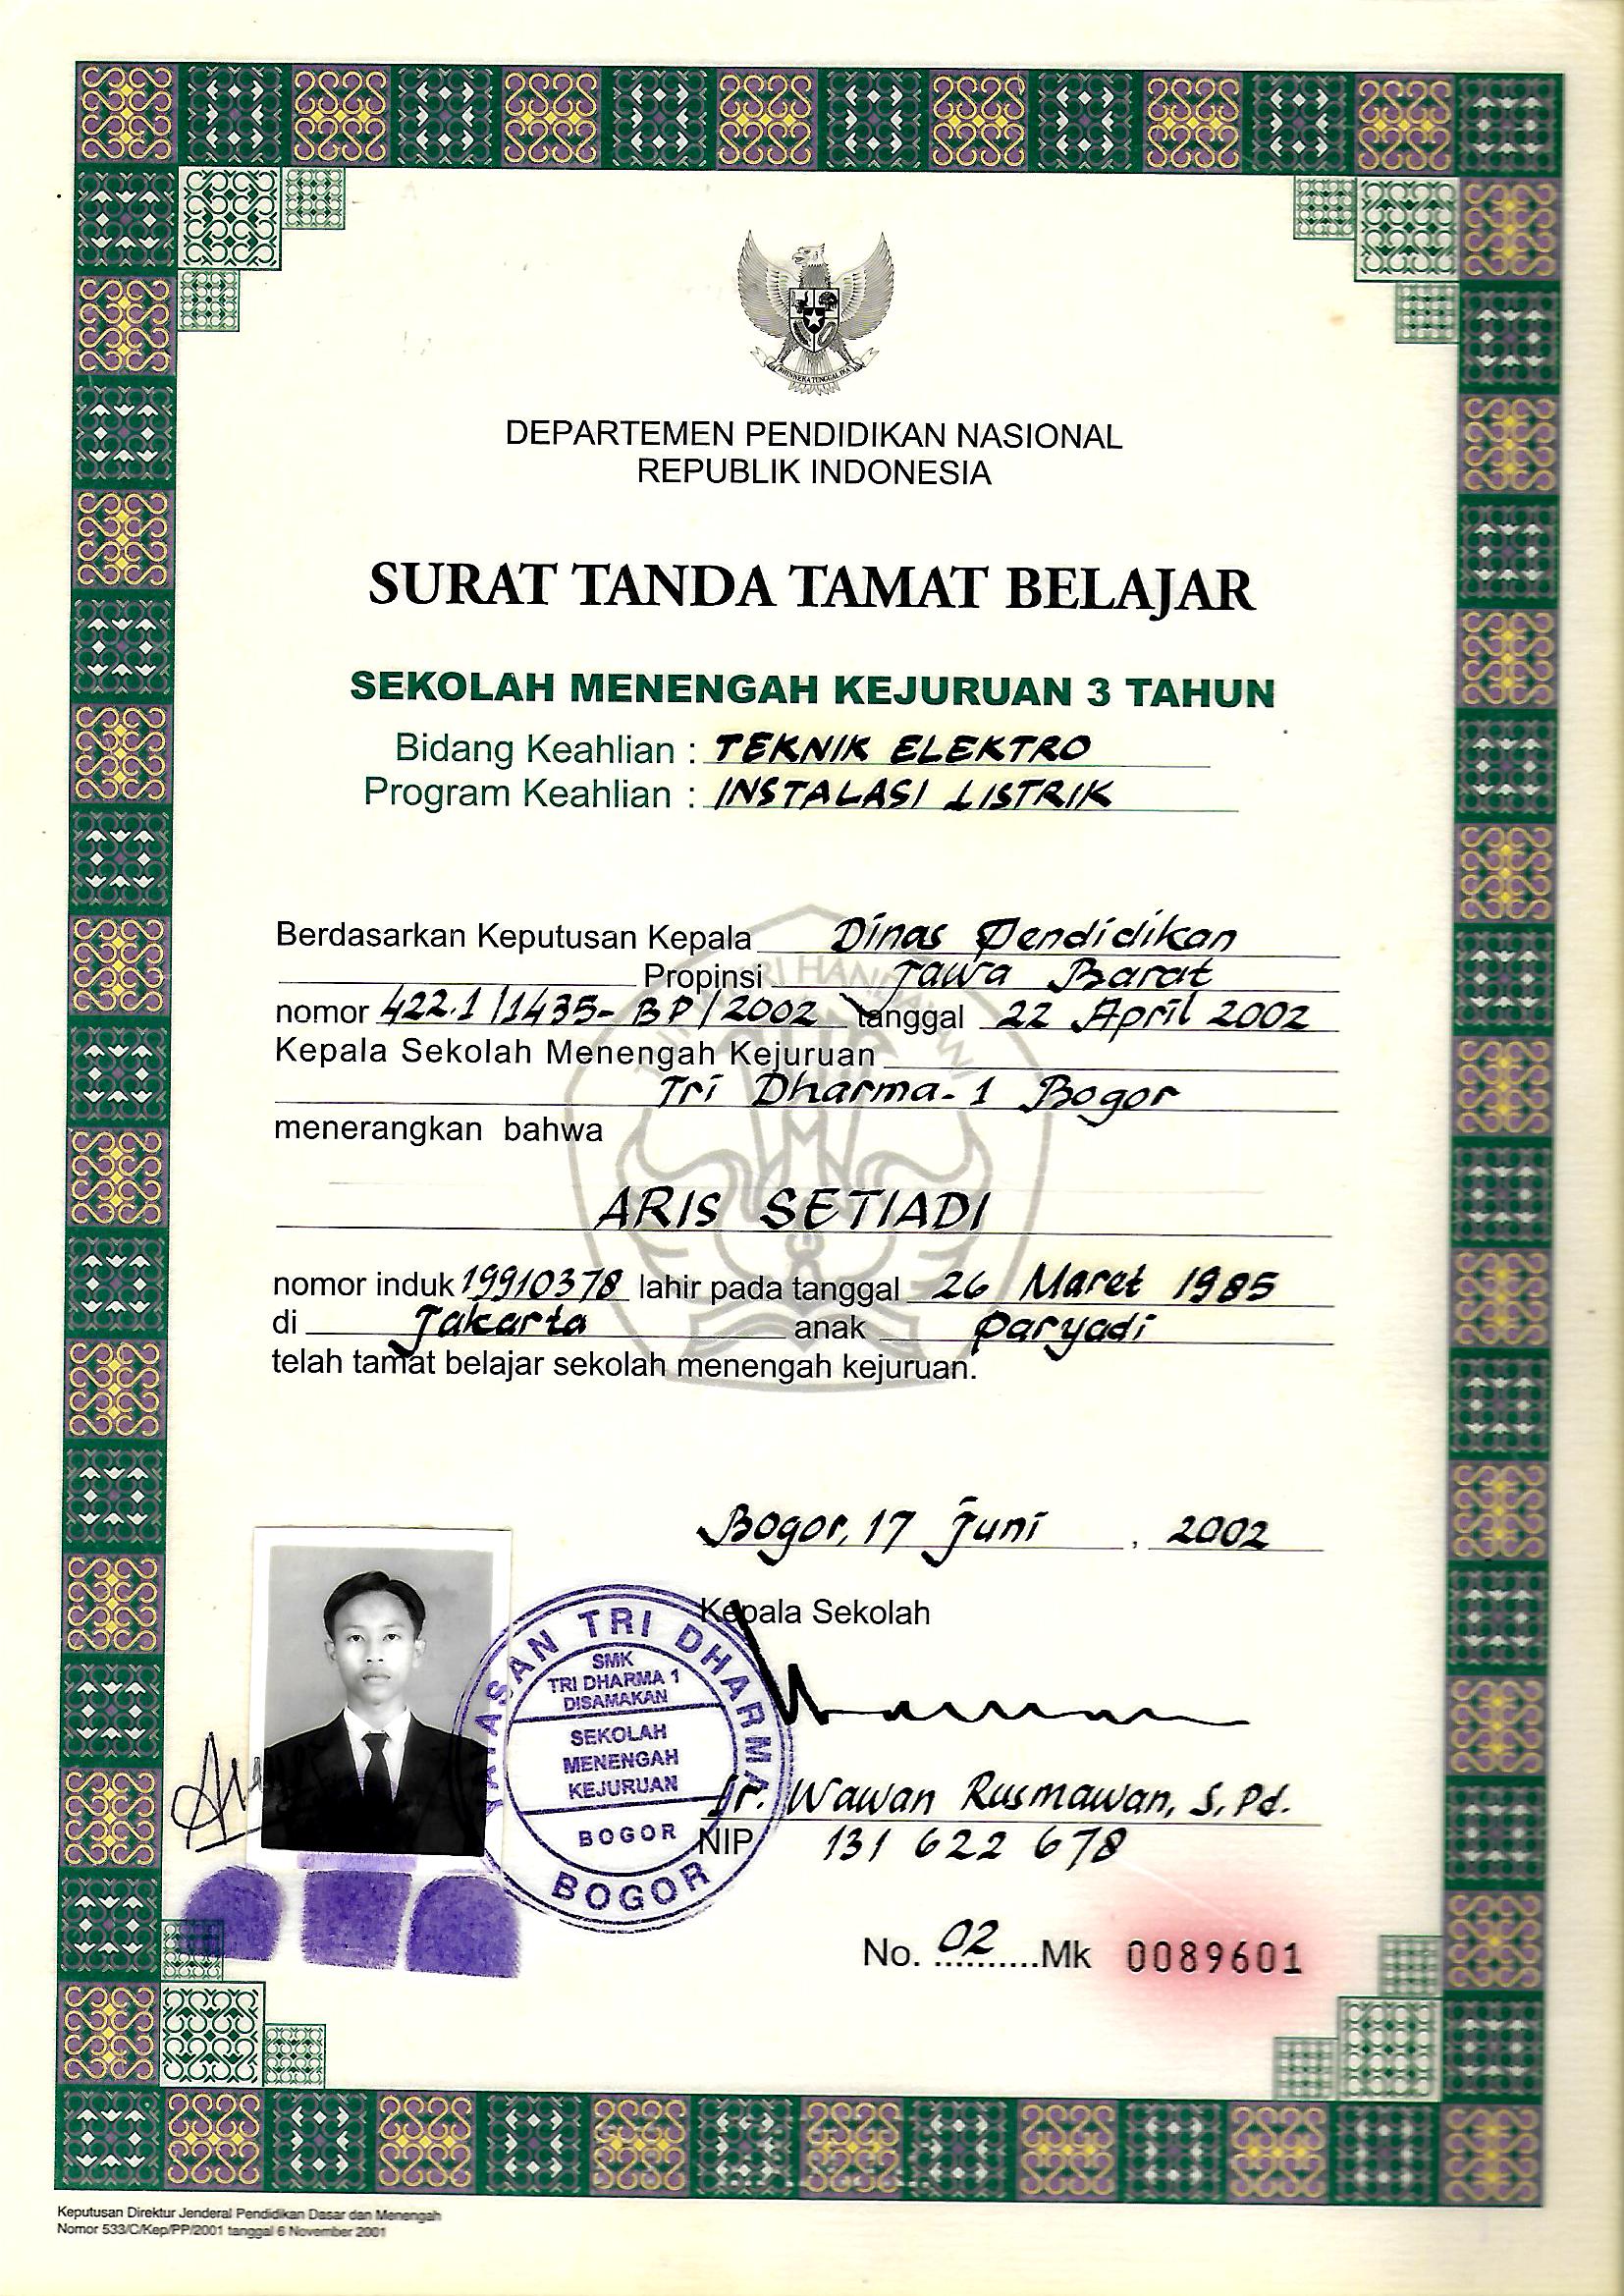 BHINNEKA TUNGGAL IKA
DEPARTEMEN PENDIDIKAN NASIONAL
REPUBLIK INDONESIA
SURAT TANDA TAMAT BELAJAR
SEKOLAH MENENGAH KEJURUAN 3 TAHUN
Bidang Keahlian : TEKNIK ELEKTRO
Program Keahlian : INSTALASI LISTRIK
Berdasarkan Keputusan Kepala Dinas Pendidikan
Propinsi Jawa Barat
nomor 422.1/1435-BP/2002 tanggal 22 April 2002
Kepala Sekolah Menengah Kejuruan
Tri Dharma-1 Bogor
menerangkan bahwa
ARIS SETIADI
nomor induk 19910378 lahir pada tanggal 26 Maret 1985
di Jakarta anak Paryadi
telah tamat belajar sekolah menengah kejuruan.
Bogor, 17 Juni, 2002
Kepala Sekolah
YAYASAN TRI DHARMA
SMK
TRI DHARMA 1
DISAMAKAN
SEKOLAH
MENENGAH
KEJURUAN
BOGOR
BOGOR
Ir. Wawan Rusmawan, S.Pd.
NIP 131 622 678
No. 02..........Mk 0089601
Keputusan Direktur Jenderal Pendidikan Dasar dan Menengah
Nomor 533/C/Kep/PP/2001 tanggal 6 November 2001